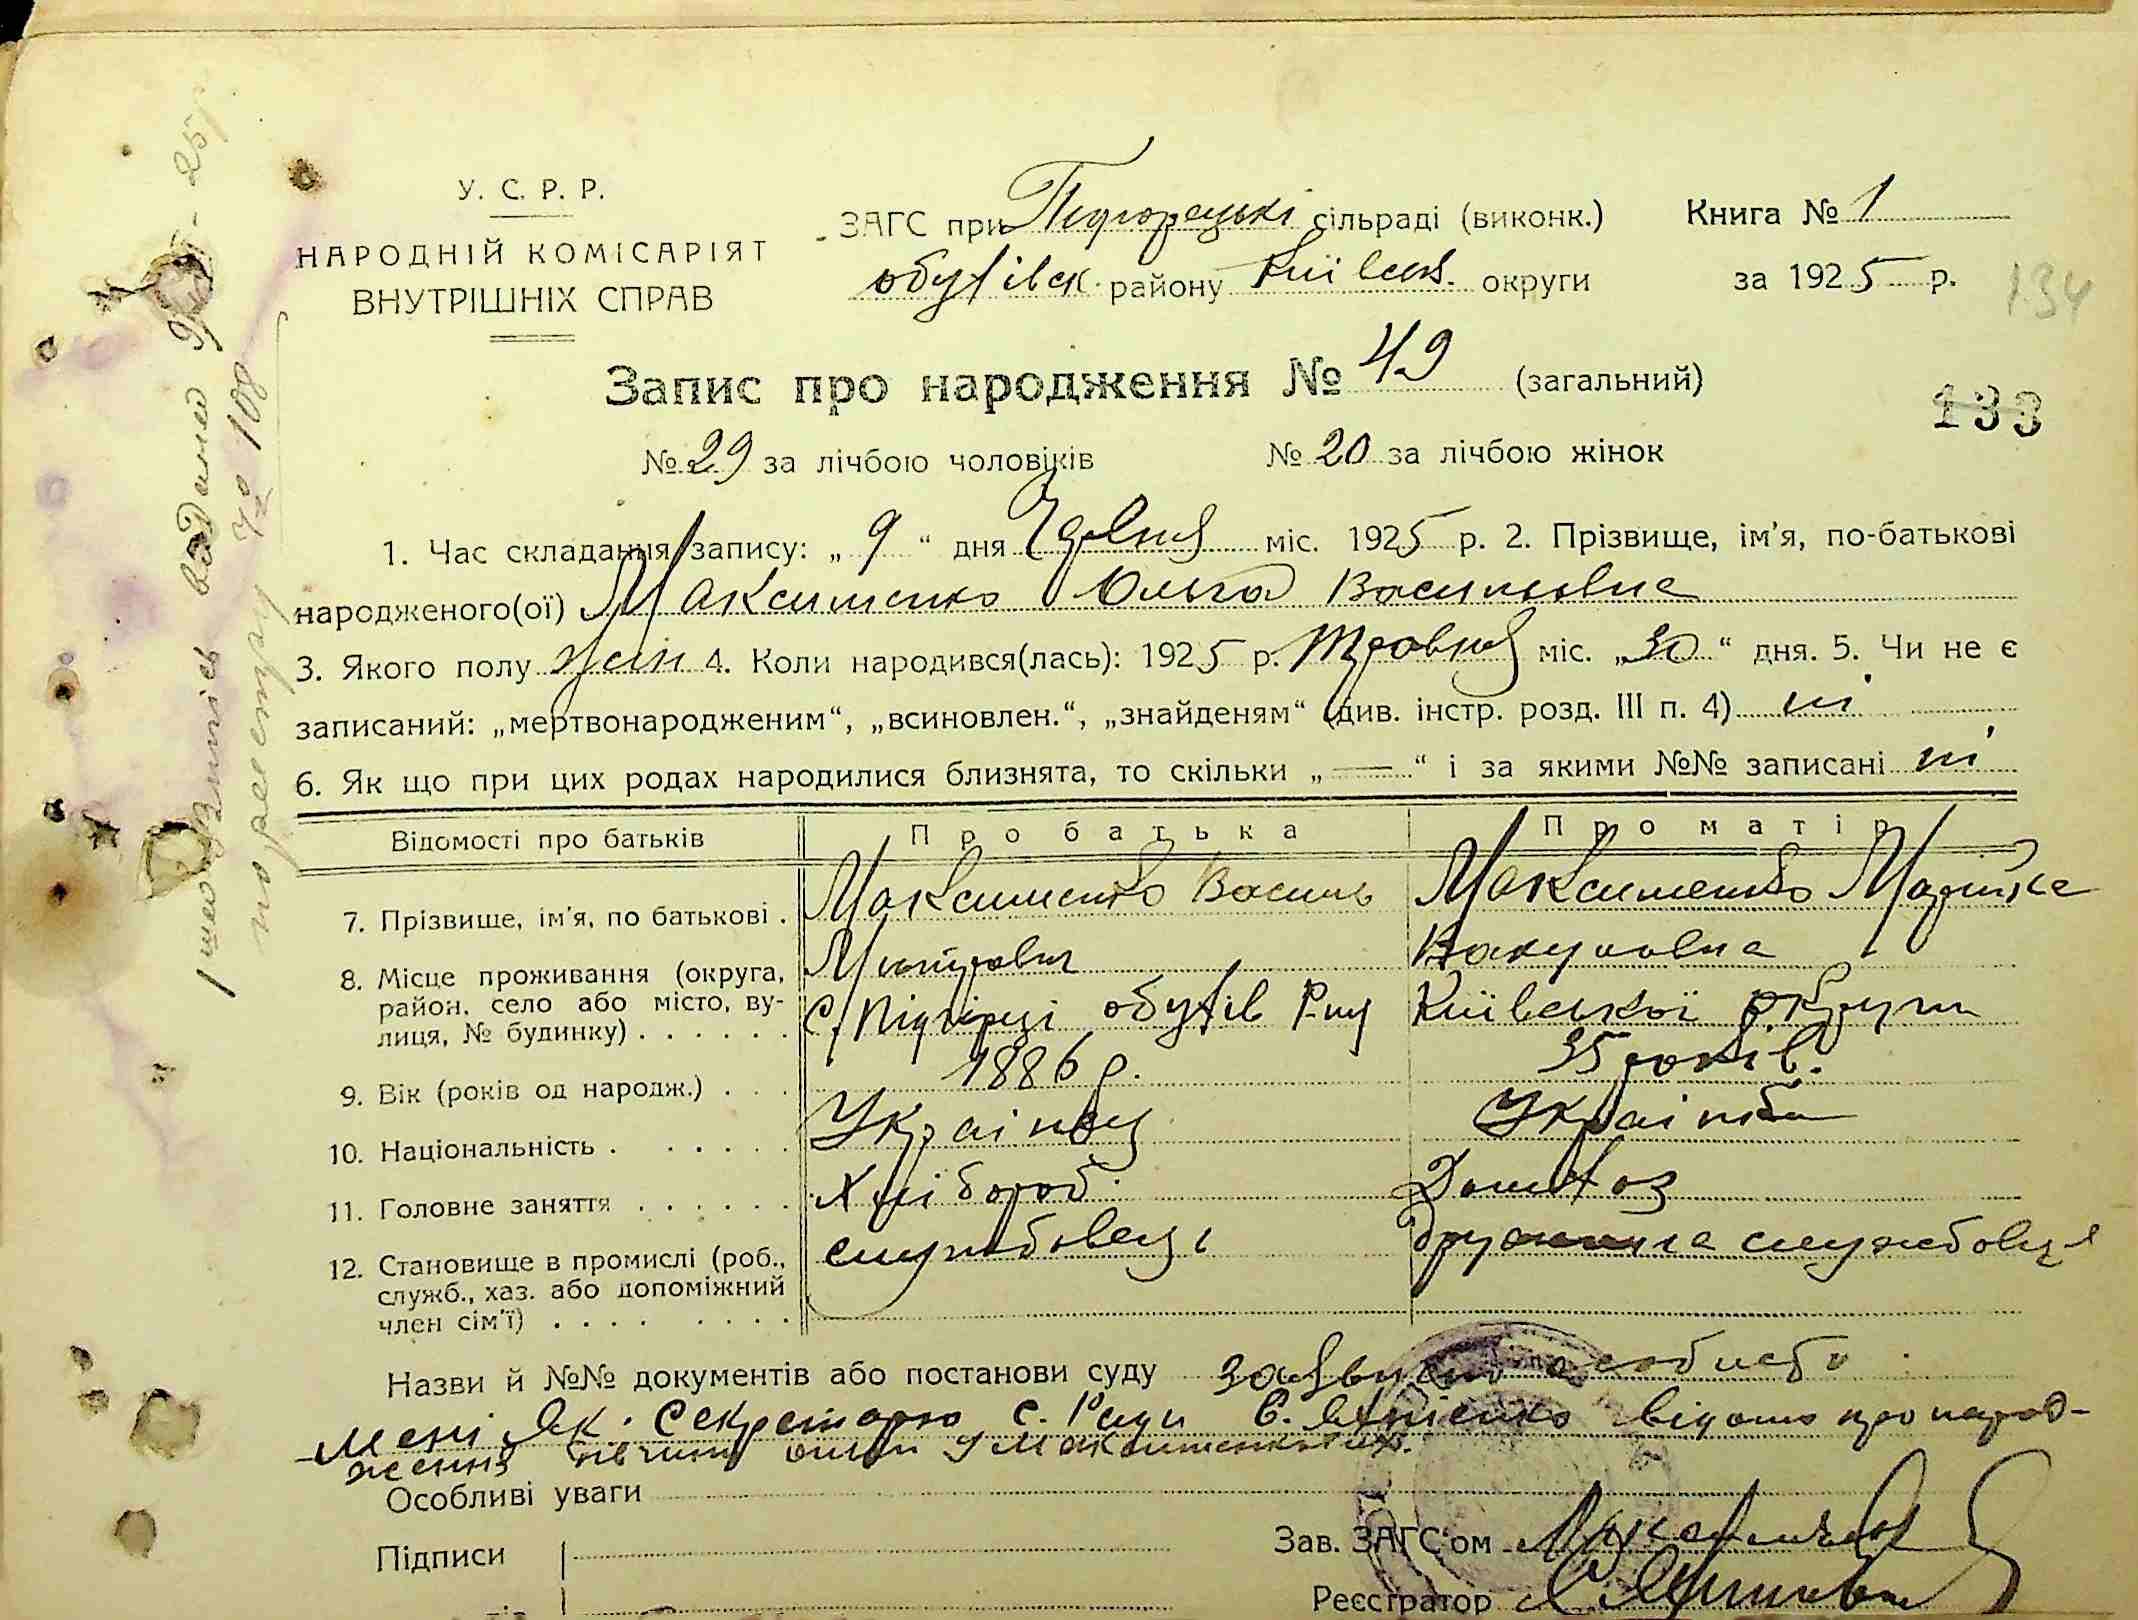 У. С. Р. Р.
НАРОДНІЙ КОМІСАРІЯТ
ВНУТРІШНІХ СПРАВ
ЗАГС при Підгорецькі сільраді (виконк.)
Книга № 1
обухівск. району Київськ. округи
за 1925 р.
134
Запис про народження № 49 (загальний)
133
№ 29 за лічбою чоловіків № 20 за лічбою жінок
1. Час складання запису: „ 9 “ дня Червня міс. 1925 р. 2. Прізвище, ім'я, по-батькові
народженого(ої) Максименко Ольга Васильовна
3. Якого полу жін 4. Коли народився(лась): 1925 р. Травня міс. „30“ дня. 5. Чи не є
записаний: „мертвонародженим“, „всиновлен.“, „знайденям“ (див. інстр. розд. III п. 4) ні
6. Як що при цих родах народилися близнята, то скільки „—“ і за якими №№ записані ні
Відомості про батьків Про батька Про матір
7. Прізвище, ім'я, по батькові . Максименко Василь Максименко Марійка
Вакуловна
8. Місце проживання (округа, район, село або місто, ву-
лиця, № будинку) . . . . . . с. Підгірці обухів р-ну Київської округи
9. Вік (років од народж.) . . . 1886 р. 35 років.
10. Національність . . . . . . Українец Українка
11. Головне заняття . . . . . . Хлібороб Домхоз
12. Становище в промислі (роб., службовець дружина службовця
служб., хаз. або допоміжний
член сім'ї) . . . . . . . .
Назви й №№ документів або постанови суду заявлено особисто.
Мені як Секретарю с. Ради відомо про народ-
ження дівчини Ольги у Максименьких.
Особливі уваги
Підписи
Зав. ЗАГС'ом
Реєстратор
виданий
по реєстру № 108